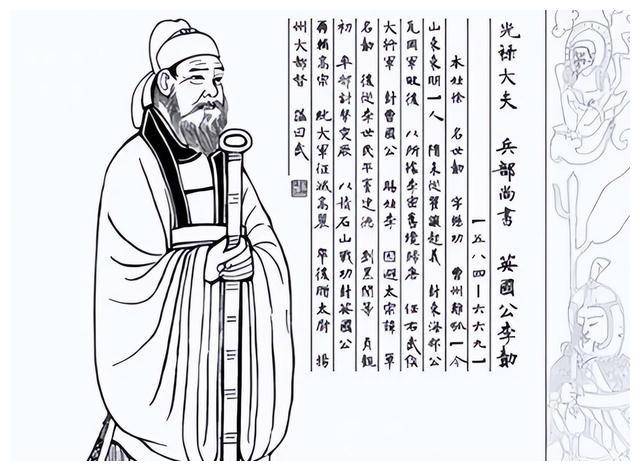 光祿大夫　兵部尚書　英國公李勣
一五八四—六六九一
本姓徐　名世勣　字懋功　曹州離狐一今
山東東明一人　隋末從翟讓起義　封東海郡公
瓦岡軍敗後　以所據李密舊境歸唐　任右武侯
大將軍　封曹國公　賜姓李　因避太宗諱　單
名勣　後從李世民平竇建德　劉黑闥等　貞觀
初　率部討擊突厥　以石山戰功封英國公
高宗　大軍征滅高麗　卒後贈太尉　揚
州大都督　諡曰武